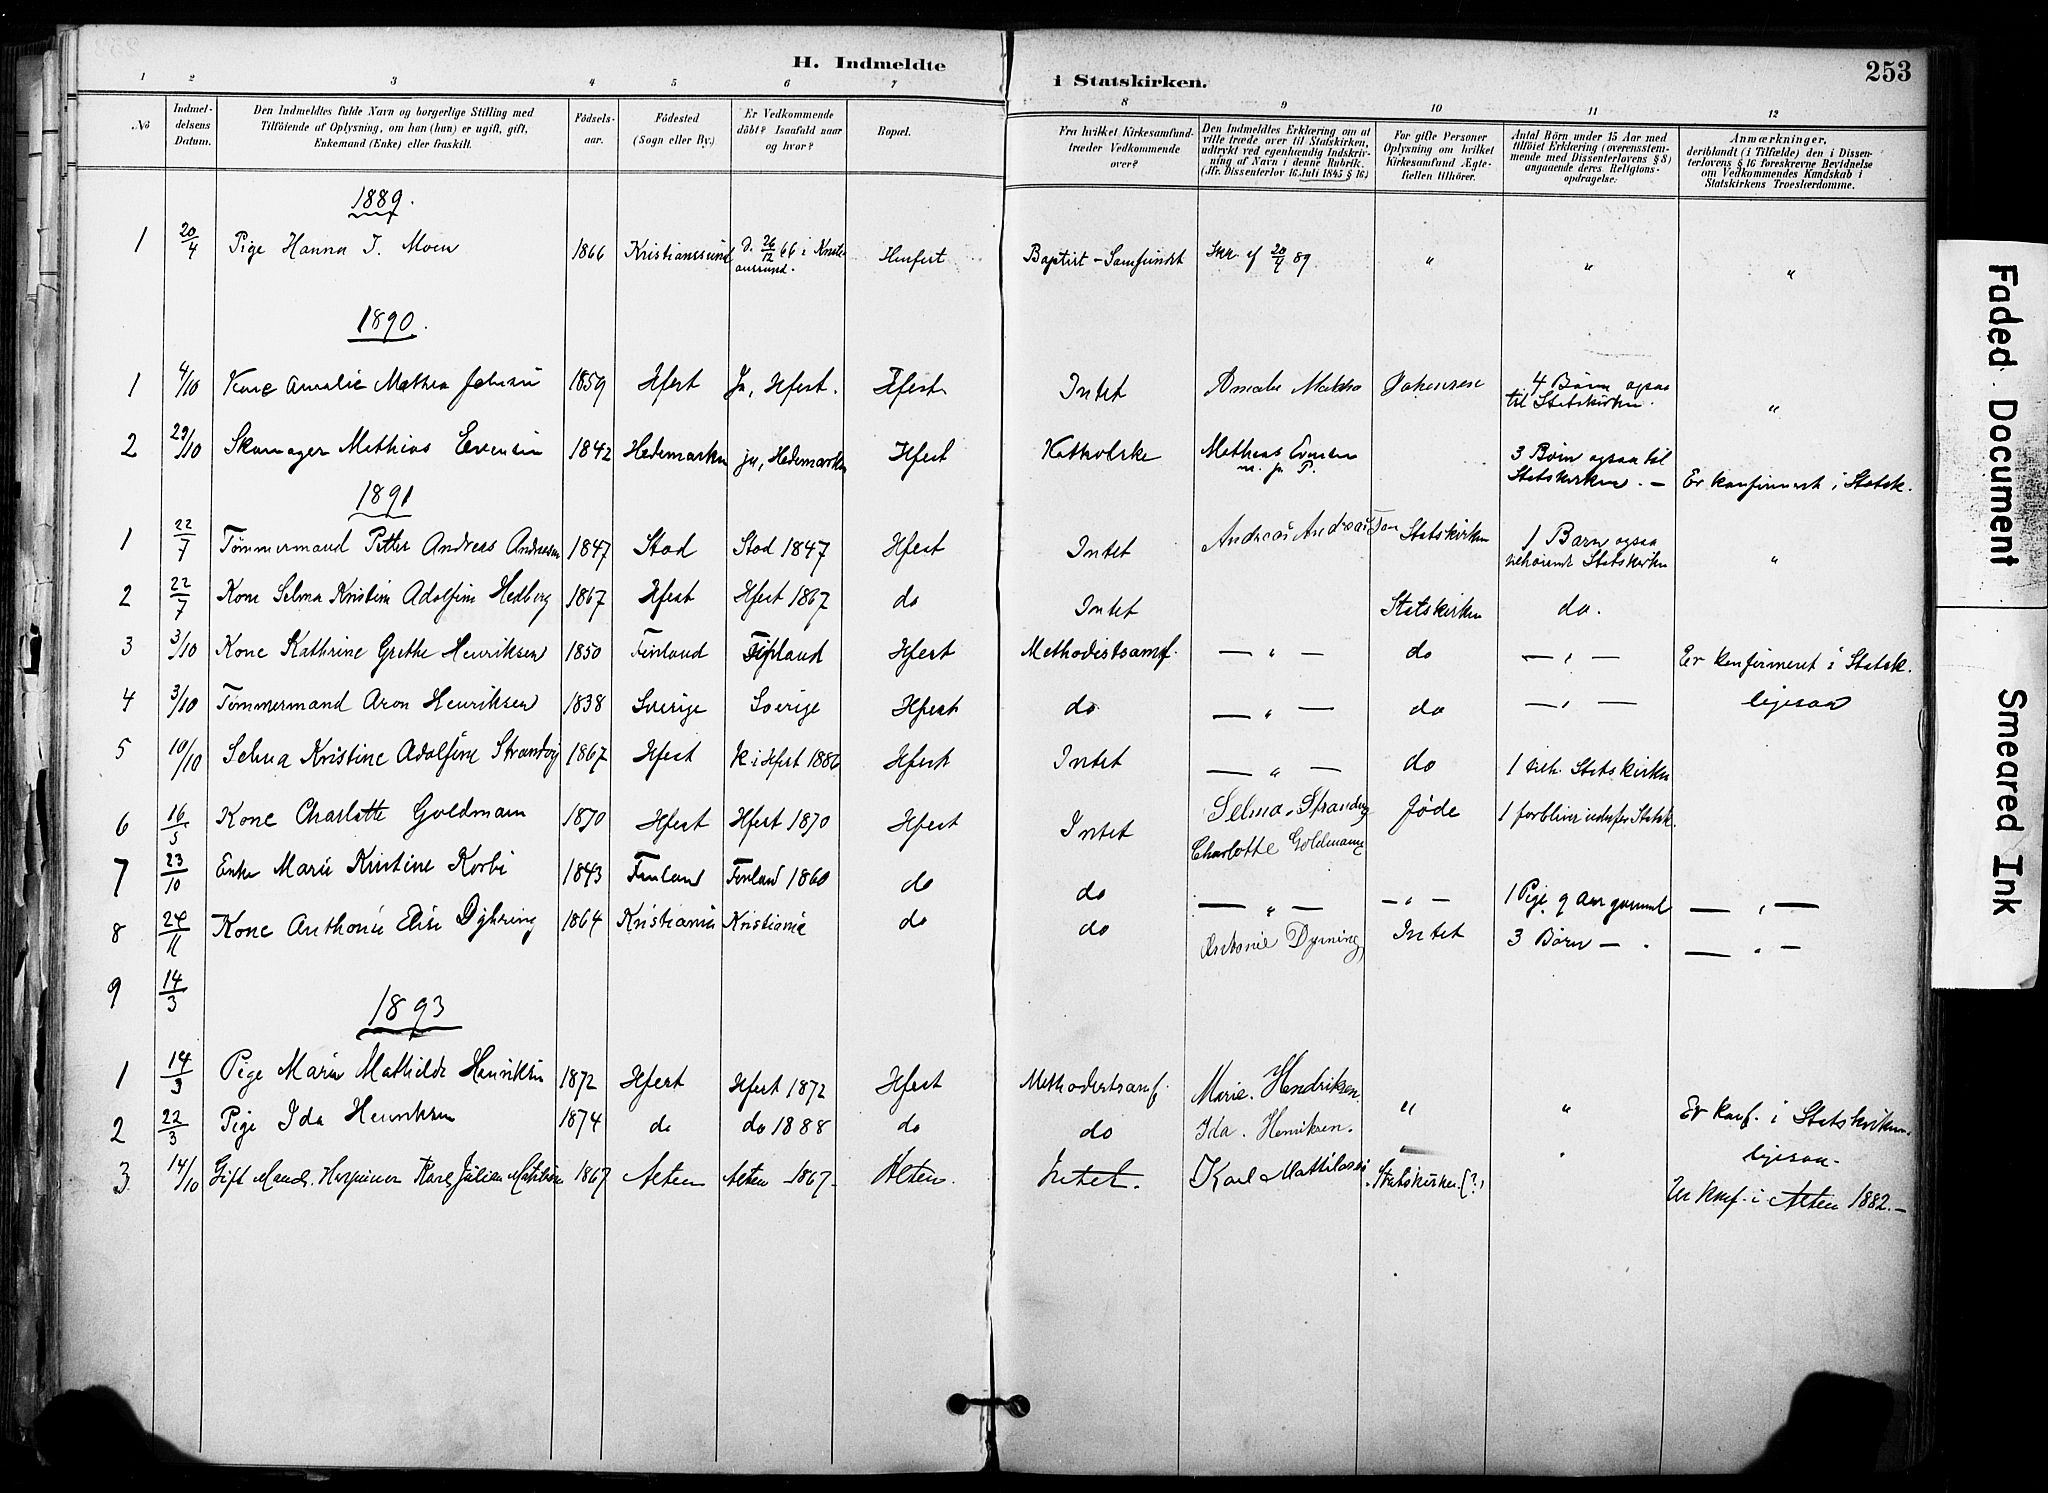 H. Indmeldte i Statskirken.
253
1 2 3 4 5 6 7 8 9 10 11 12
No
Indmeldelsens Datum.
Den Indmeldtes fulde Navn og borgerlige Stilling med
Tilföiende af Oplysning, om han (hun) er ugift, gift,
Enkemand (Enke) eller fraskilt.
Födselsaar.
Födested
(Sogn eller By.)
Er Vedkommende
döbt? Isaafald naar
og hvor?
Bopæl.
Fra hvilket Kirkesamfund
træder Vedkommende
over?
Den Indmeldtes Erklæring om at
ville træde over til Statskirken,
udtrykt ved egenhændig Indskriv-
ning af Navn i denne Rubrik.
(Jfr. Dissenterlov 16. Juli 1845 § 16.)
For gifte Personer
Oplysning om hvilket
Kirkesamfund Ægte-
fællen tilhörer.
Antal Börn under 15 Aar med
tilföiet Erklæring (overensstem-
mende med Dissenterlovens § 8)
angaaende deres Religions-
opdragelse.
Anmærkninger,
deriblandt (i Tilfælde) den i Dissen-
terlovens § 16 foreskrevne Bevidnelse
om Vedkommendes Kundskab i
Statskirkens Troeslærdomme.
1889.
1 20/4 Pige Hanna J. Moen 1866 Kristianssund D. 26/12 66 i Kristi-
anssund. Hmfest Baptist-Samfundet Skr. af 20/4 89 " " "
1890.
1 4/10 Kone Amalie Mathea Johnsen 1859 Hfest Ja, Hfest. Hfest Intet Amalie Mathea Johannesen 4 Børn ogsaa
til Statskirken. "
2 29/10 Skomager Mathias Evensen 1842 Hedemarken ja, Hedemarken Hfest Katholske Mathias Evensen
m. p. P. 3 Børn ogsaa til
Statskirken. — Er konfirmeret i Statsk.
1891
1 22/7 Tømmermand Petter Andreas Andresen 1847 Stod Stod 1847 Hfest Intet Andreas Andreassen Statskirken 1 Barn ogsaa
tilhørende Statskirken "
2 22/7 Kone Selma Kristine Adolfine Hedberg 1867 Hfest Hfest 1867 do Intet Statskirken do.
3 3/10 Kone Kathrine Grethe Henriksen 1850 Finland Finland Hfest Methodistsamf. — " — do — " — Er konfirmeret i Statsk.
4 3/10 Tømmermand Aron Henriksen 1838 Sverige Sverige Hfest do — " — do — " — ligesaa
5 10/10 Selma Kristine Adolfine Strandvg 1867 Hfest K i Hfest 1886 Hfest Intet — " — do 1 tilh. Statskirken
6 16/5 Kone Charlotte Goldmann 1870 Hfest Hfest 1870 Hfest Intet Selma Strandvg Jøde 1 forbliver udenfor Statsk.
Charlotte Goldmann
7 23/10 Enke Marie Kristine Korbi 1843 Finland Finland 1860 do do — " — — " — 1 Pige 9 Aar gammel — " —
8 24/11 Kone Anthonie Elise Dyhring 1864 Kristiania Kristiania do do Antonie Dyrning Intet 3 Børn — " — " —
9 14/3
1893
1 14/3 Pige Marie Mathilde Henriksen 1872 Hfest Hfest 1872 Hfest Methodistsamf. Marie. Hendriksen. " " Er konf. i Statskirken.
2 22/3 Pige Ida Henriksen 1874 do do 1888 do do Ida. Henriksen. — " ligesaa.
3 14/10 Gift Mand. Karl Julian 1867 Alten Alten 1867 Alten. Intet. Karl Mattilassi Statskirken (?) Er konf. i Alten 1882.—
Faded Document
Smeared Ink